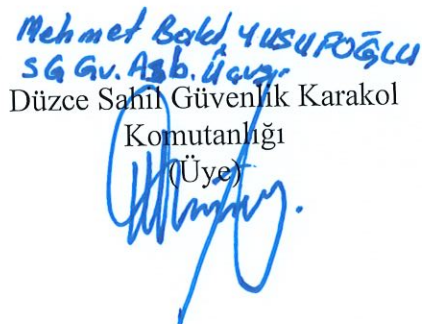 Mehmet Baki YUSUFOĞLU
SG Gv. Asb. Üçvş.
Düzce Sahil Güvenlik Karakol
Komutanlığı
(Üye)